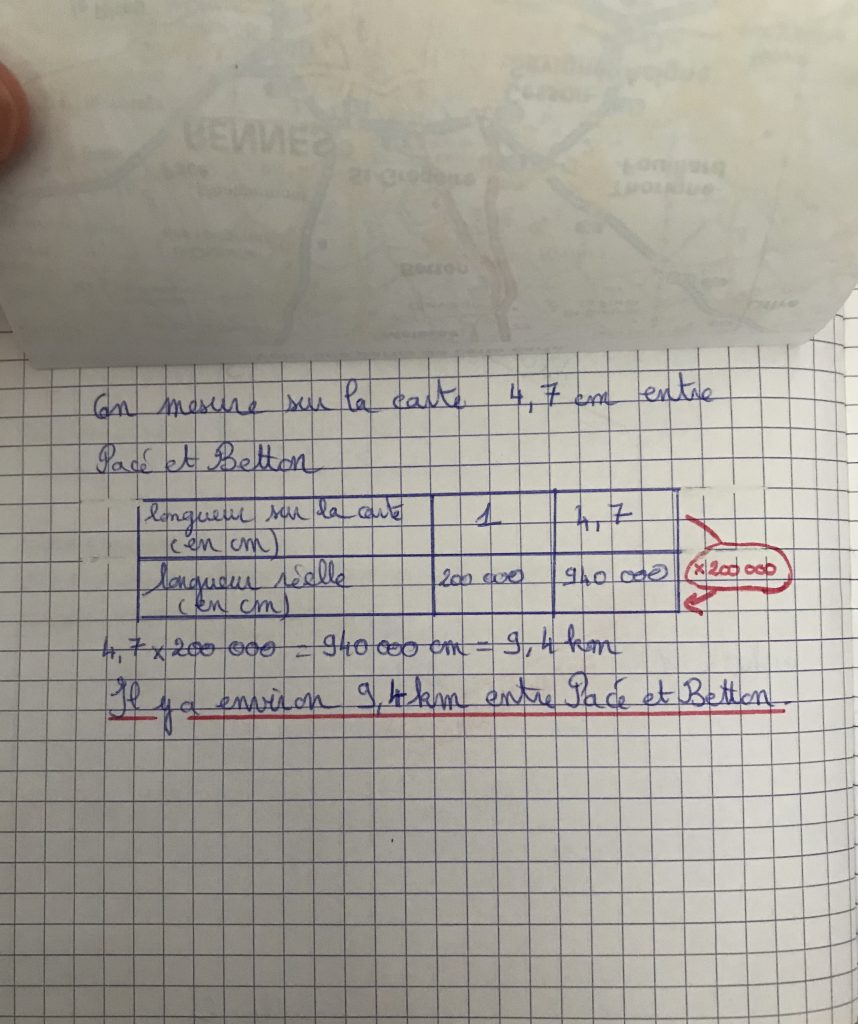 RENNES
St-Grégoire
Betton
On mesure sur la carte 4,7 cm entre
Pacé et Betton
longueur sur la carte (en cm) 1 4,7
longueur réelle (en cm) 200 000 940 000 ×200 000
4,7 × 200 000 = 940 000 cm = 9,4 km
Il y a environ 9,4 km entre Pacé et Betton.